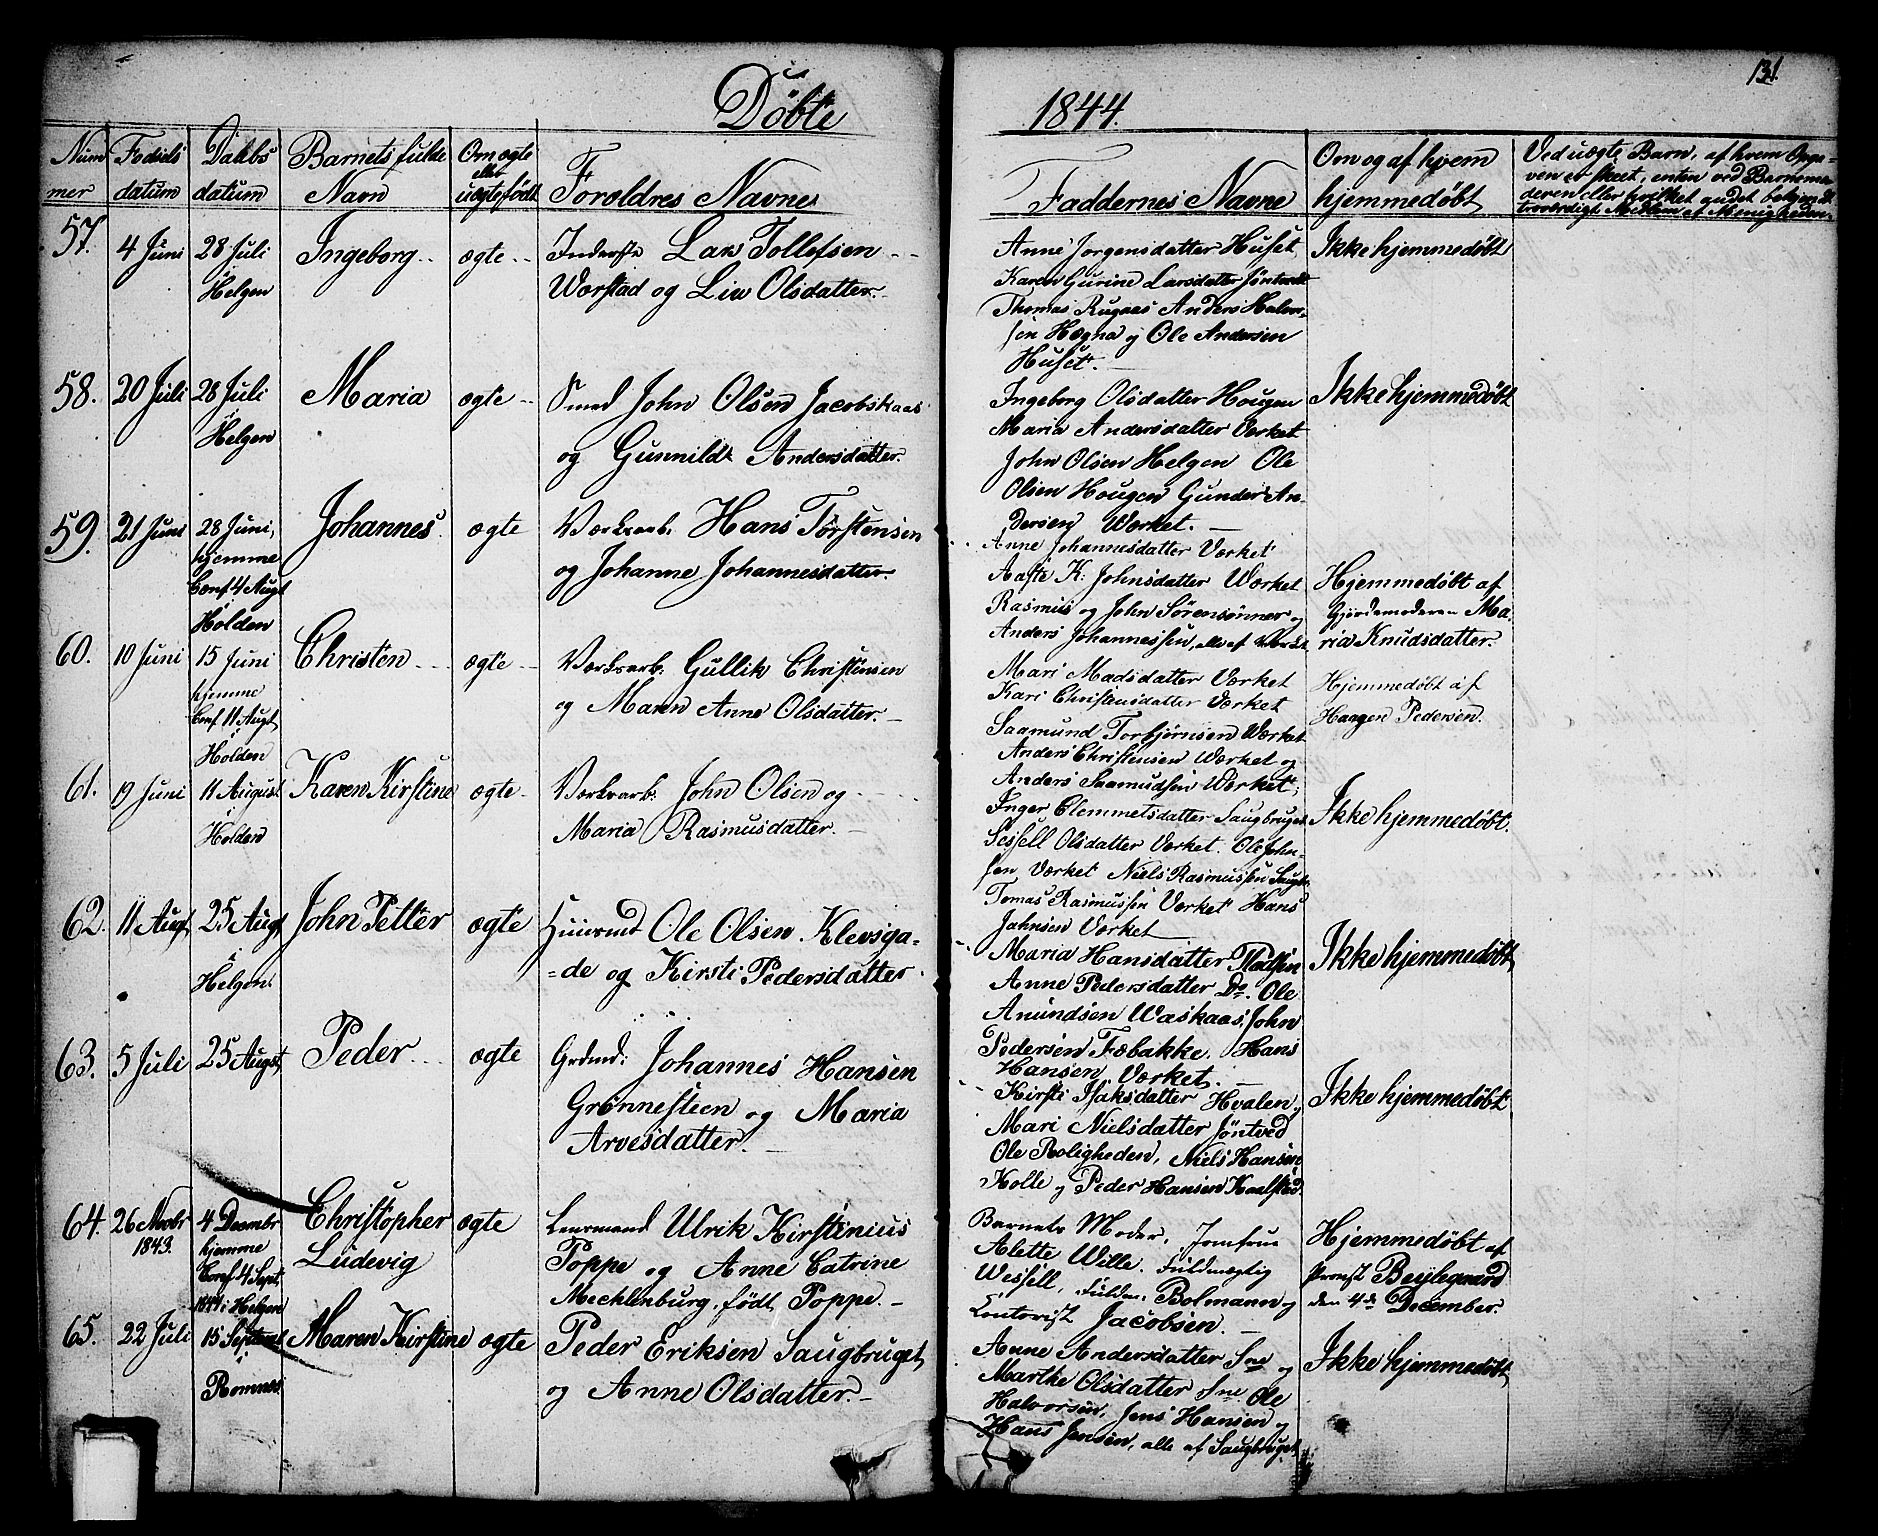 131
Döbte 1844.
Num
mer
Fødsels
datum
Daabs
datum
Barnets fulde
Navn
Om ægte
eller
uægtefødt
Foroldres Navne
Faddernes Navne
Om og af hvem
hjemmedøbt
Ved uægte Barn, af hvem Opga-
ven er skeet, enten ved Barnemo-
deren eller hvilket andet bekjendt
troværdigt Medlem af Menigheden.
57. 4 Juni
28 Juli
i
Helgen
Ingeborg
ægte
Inderste Lars Tollefsen
Wærstad og Liv Olsdatter.
Anne Jorgensdatter Huset
Karen Gurine Larsdatter Jöntvedt
Thomas Rugaas Anders Halvor-
sen Hægna og Ole Andersen
Huset.
Ikke hjemmedøbt
58. 20 Juli
28 Juli
i
Helgen
Maria
ægte
Smed John Olsen Jacobskaas
og Gunnild Andersdatter.
Ingeborg Olsdatter Hougen
Maria Andersdatter Værket
John Olsen Helgen Ole
Olsen Hougen Gunder An-
dersen Værket.
Ikke hjemmedøbt
59. 21 Juni
28 Juni,
hjemme
Conf 4 Augt
i
Holden
Johannes
ægte
Værksarb. Hans Torstensen
og Johanne Johannesdatter.
Anne Johannesdatter Værket
Aaste K. Johnsdatter Værket
Rasmus og John Sörensönner og
Anders Johannessen, alle af Værket
Hjemmedøbt af
Gjordemoderen Ma-
ria Knudsdatter.
60. 10 Juni
15 Juni
hjemme
Conf 11 Augt,
i
Holden
Christen
ægte
Værksarb. Gullik Christensen
og Maren Anne Olsdatter.
Mari Madsdatter Værket
Kari Christensdatter Værket
Saamund Torbjørnsen Værket
Anders Christensen Værket og
Anders Saamundsen Værket,
Hjemmedøbt af
Hangen Pedersen.
61. 19 Juni
11 August
i
Holden
Karen Kirstine
ægte
Værksarb. John Olsen og
Maria Rasmusdatter.
Inger Clemmetsdatter Saugbruget
Sessell Olsdatter Værket. Ole John-
sen, Værket Niels Rasmussen Saugb.
Tomas Rasmussen Værket Hans
Jahnsen Værket
Ikke hjemmedøbt.
62. 11 Augt,
25 Augt
i
Helgen.
John Petter
ægte
Huusmd Ole Olsen Klevsga-
de og Kirsti Pedersdatter
Maria Hansdatter
Anne Pedersdatter Do. Ole
Amundsen Waskaas, John
Pedersen Fæbakke. Hans
Hansen Værket.
Ikke hjemmedøbt
63. 5 Juli
25 Augst,
Peder
ægte
Grdmd: Johannes Hansen
Grönnesteen og Maria
Arvesdatter.
Kirsti Isaksdatter Hvalen,
Mari Nielsdatter Jöntved
Ole Roligheden, Niels Hansen
Holle og Peder Hansen Kaalstad.
Ikke hjemmedøbt
64. 26 Novbr
1843.
4 Decembr
hjemme
Conf 4 Sept
1844 i Helgen
Christopher
Ludevig
ægte
Lensmand Ulrik Kirstinius
Poppe og Anne Catrine
Mecklenburg, født Poppe.
Barnets Moder, Jomfrue
Alette Wille. Fuldmægtig
Wessell, Fuldm. Bolmann og
Contorist Jacobsen.
Hjemmedøbt af
Provst Beylegaard
den 4de December.
65. 22 Juli
15 September
i
Romnæs
Maren Kirstine
ægte
Peder Eriksen Saugbruget,
og Anne Olsdatter.
Anne Andersdatter Sne og
Marthe Olsdatter Sne Ole
Halvorsen, Jens Hansen og
Hans Jensen, alle af Saugbruget.
Ikke hjemmedøbt